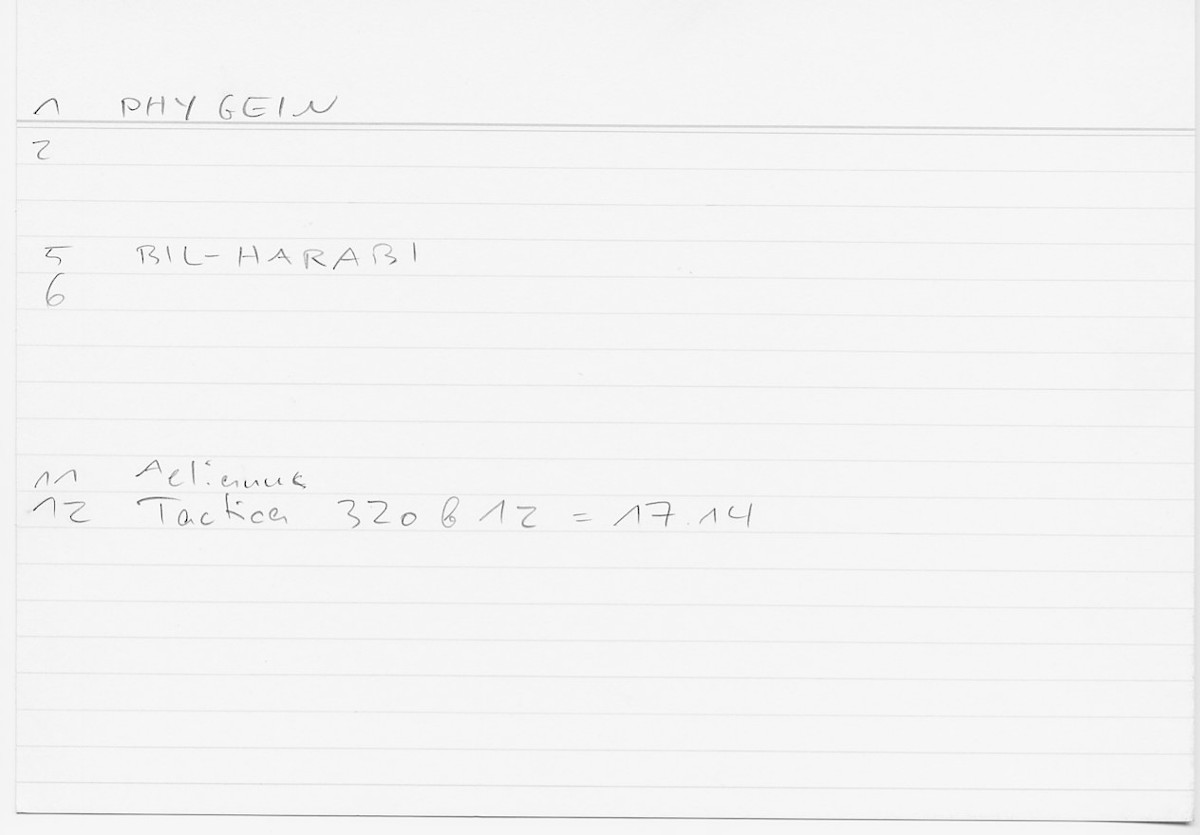 1 PHYGEIN
2
5 BIL-HARABI
6
11 Aelianus
12 Tactica 320 b 12 = 17.14